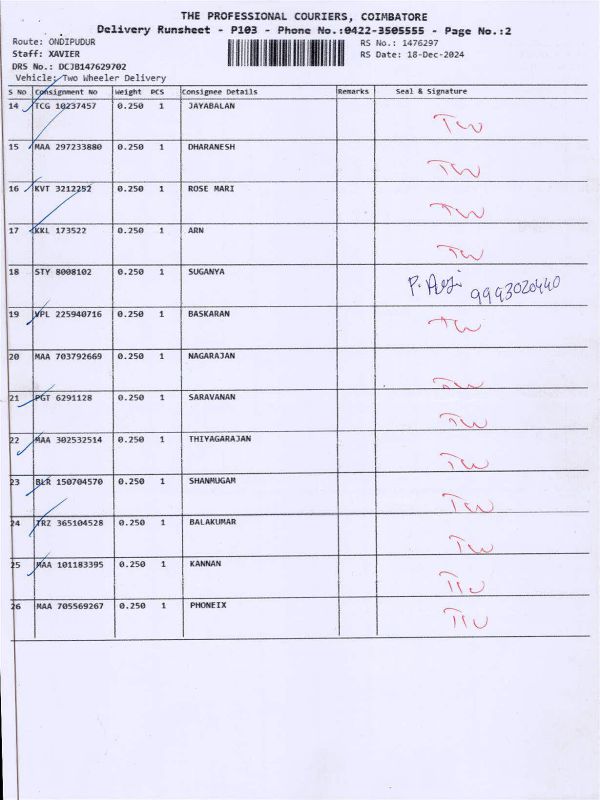 THE PROFESSIONAL COURIERS, COIMBATORE
Delivery Runsheet - P103 - Phone No.:0422-3505555 - Page No.:2
Route: ONDIPUDUR RS No.: 1476297
Staff: XAVIER RS Date: 18-Dec-2024
DRS No.: DCJB147629702
Vehicle: Two Wheeler Delivery
S No Consignment No Weight PCS Consignee Details Remarks Seal & Signature
14 TCG 10237457 0.250 1 JAYABALAN TW
15 MAA 297233880 0.250 1 DHARANESH TW
16 KVT 3212252 0.250 1 ROSE MARI TW
17 KKL 173522 0.250 1 ARN TW
18 STY 8008102 0.250 1 SUGANYA P. 9993020440
19 VPL 225940716 0.250 1 BASKARAN TW
20 MAA 703792669 0.250 1 NAGARAJAN TW
21 PGT 6291128 0.250 1 SARAVANAN TW
22 MAA 302532514 0.250 1 THIYAGARAJAN TW
23 BLR 150704570 0.250 1 SHANMUGAM TW
24 TRZ 365104528 0.250 1 BALAKUMAR TW
25 MAA 101183395 0.250 1 KANNAN TW
26 MAA 705569267 0.250 1 PHONEIX TW